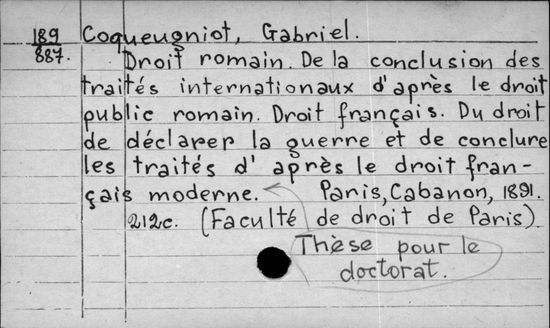 189 Coqueugniot, Gabriel.
887. Droit romain. De la conclusion des
traités internationaux d'après le droit
public romain. Droit français. Du droit
de déclarer la guerre et de conclure
les traités d'après le droit fran-
çais moderne. Paris, Cabanon, 1891.
212c. (Faculté de droit de Paris).
Thèse pour le
doctorat.